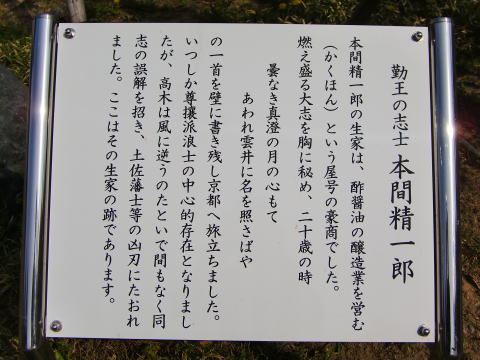 勤王の志士 本間精一郎
本間精一郎の生家は、酢醤油の醸造業を営む
(かくほん)という屋号の豪商でした。
燃え盛る大志を胸に秘め、二十歳の時
曇なき真澄の月の心もて
あわれ雲井に名を照さばや
の一首を壁に書き残し京都へ旅立ちました。
いつしか尊攘派浪士の中心的存在となりまし
たが、高木は風に逆うのたといで間もなく同
志の誤解を招き、土佐藩士等の凶刃にたおれ
ました。ここはその生家の跡であります。